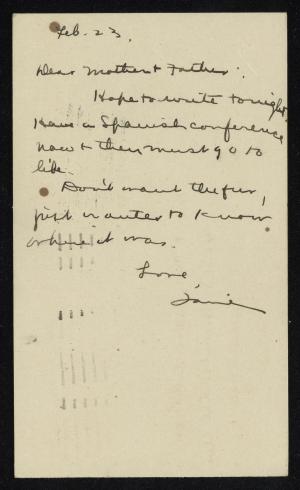 Feb. 23.
Dear Mother & Father:
Hope to write tonight.
Have a Spanish conference
now & then must go to
lib.
Don't want the fur,
just wanted to know
where it was.
Love,